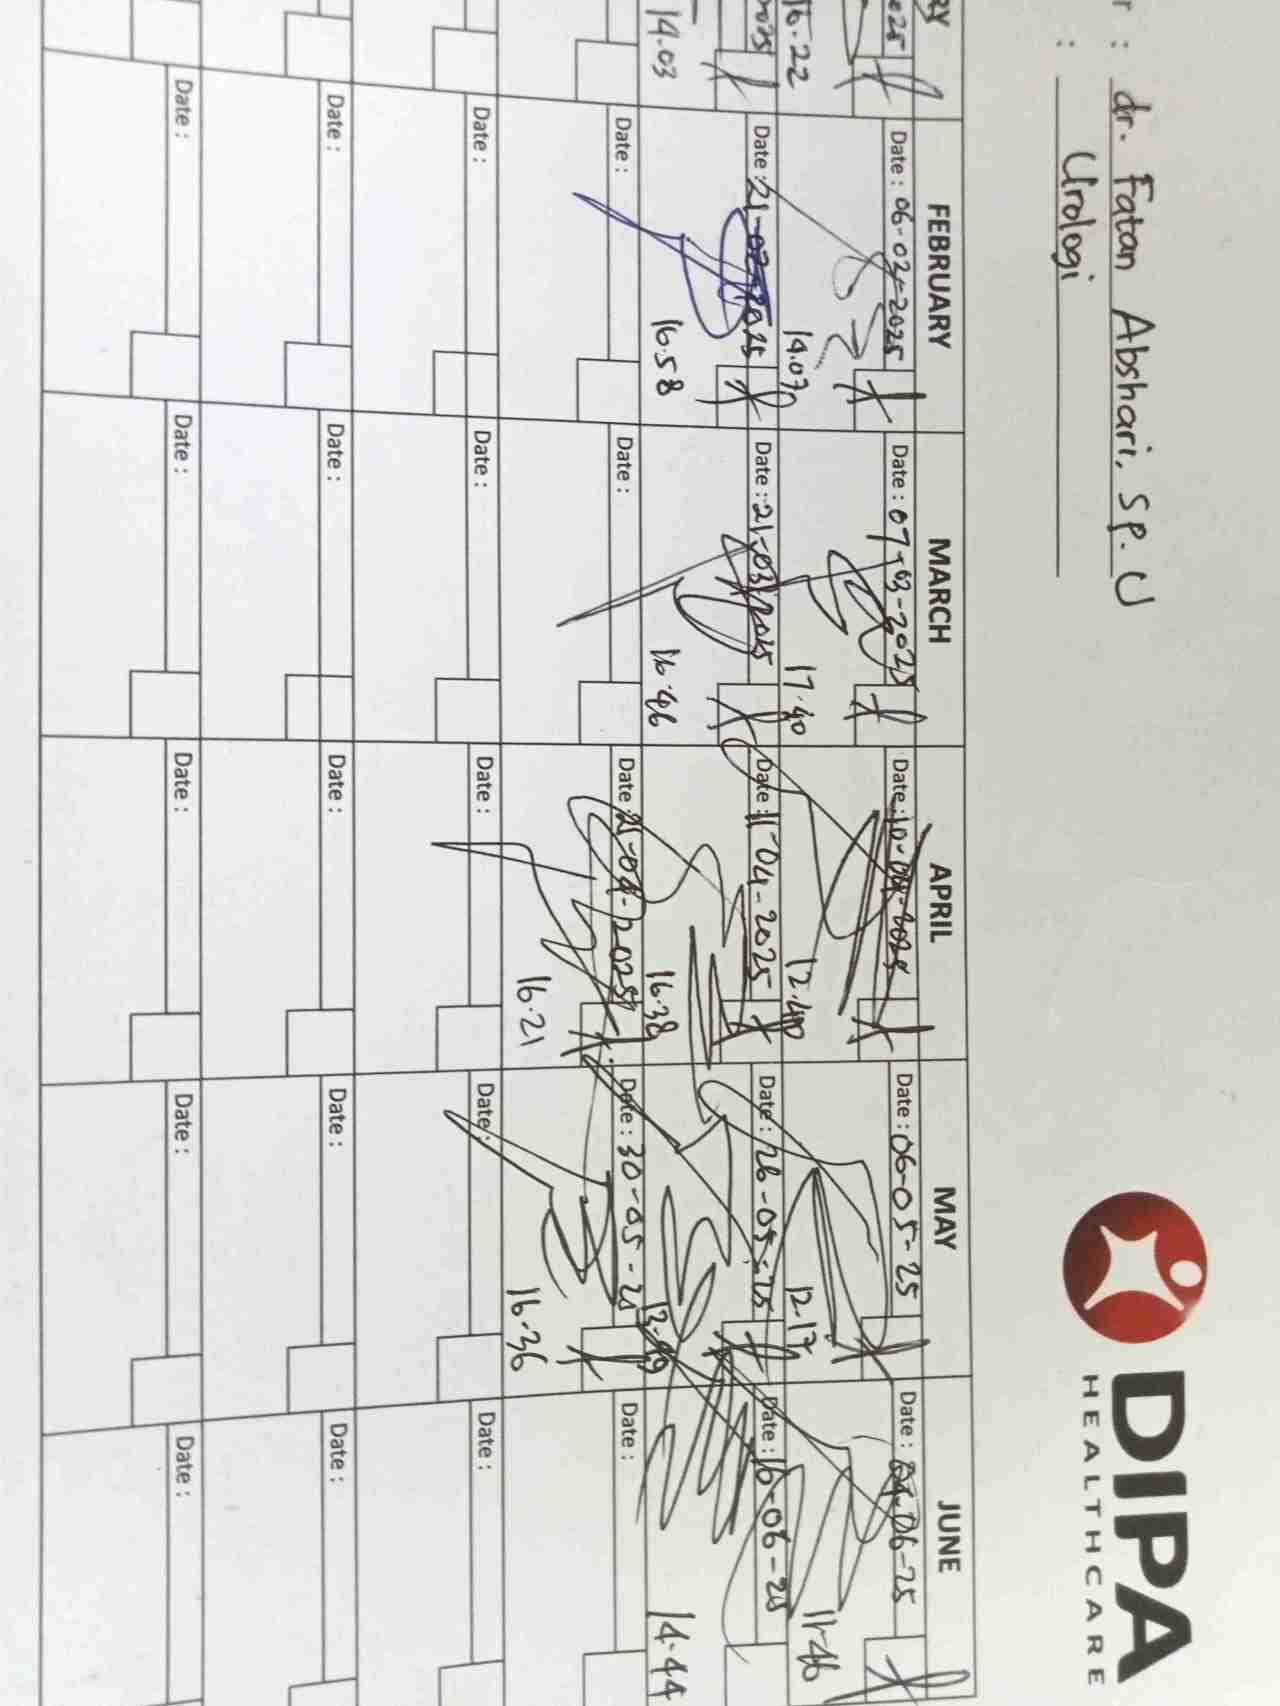 r : dr. Fatan Abshari, Sp. U
: Urologi
DIPA
HEALTHCARE
RY FEBRUARY MARCH APRIL MAY JUNE
2025 Date : 06-02-2025 Date : 07-03-2025 Date : 10-04-2025 Date : 06-05-25 Date : 04-06-25
16.22 14.07 17.40 12.40 12.17 11.46
2025 Date : 21-02-2025 Date : 21-03-2025 Date : 11-04-2025 Date : 26-05-25 Date : 16-06-25
14.03 16.58 16.46 16.38 14.44
Date : Date : Date : 25-04-2025 Date : 30-05-25 Date :
16.21 16.36
Date : Date : Date : Date : Date :
Date : Date : Date : Date : Date :
Date : Date : Date : Date : Date :